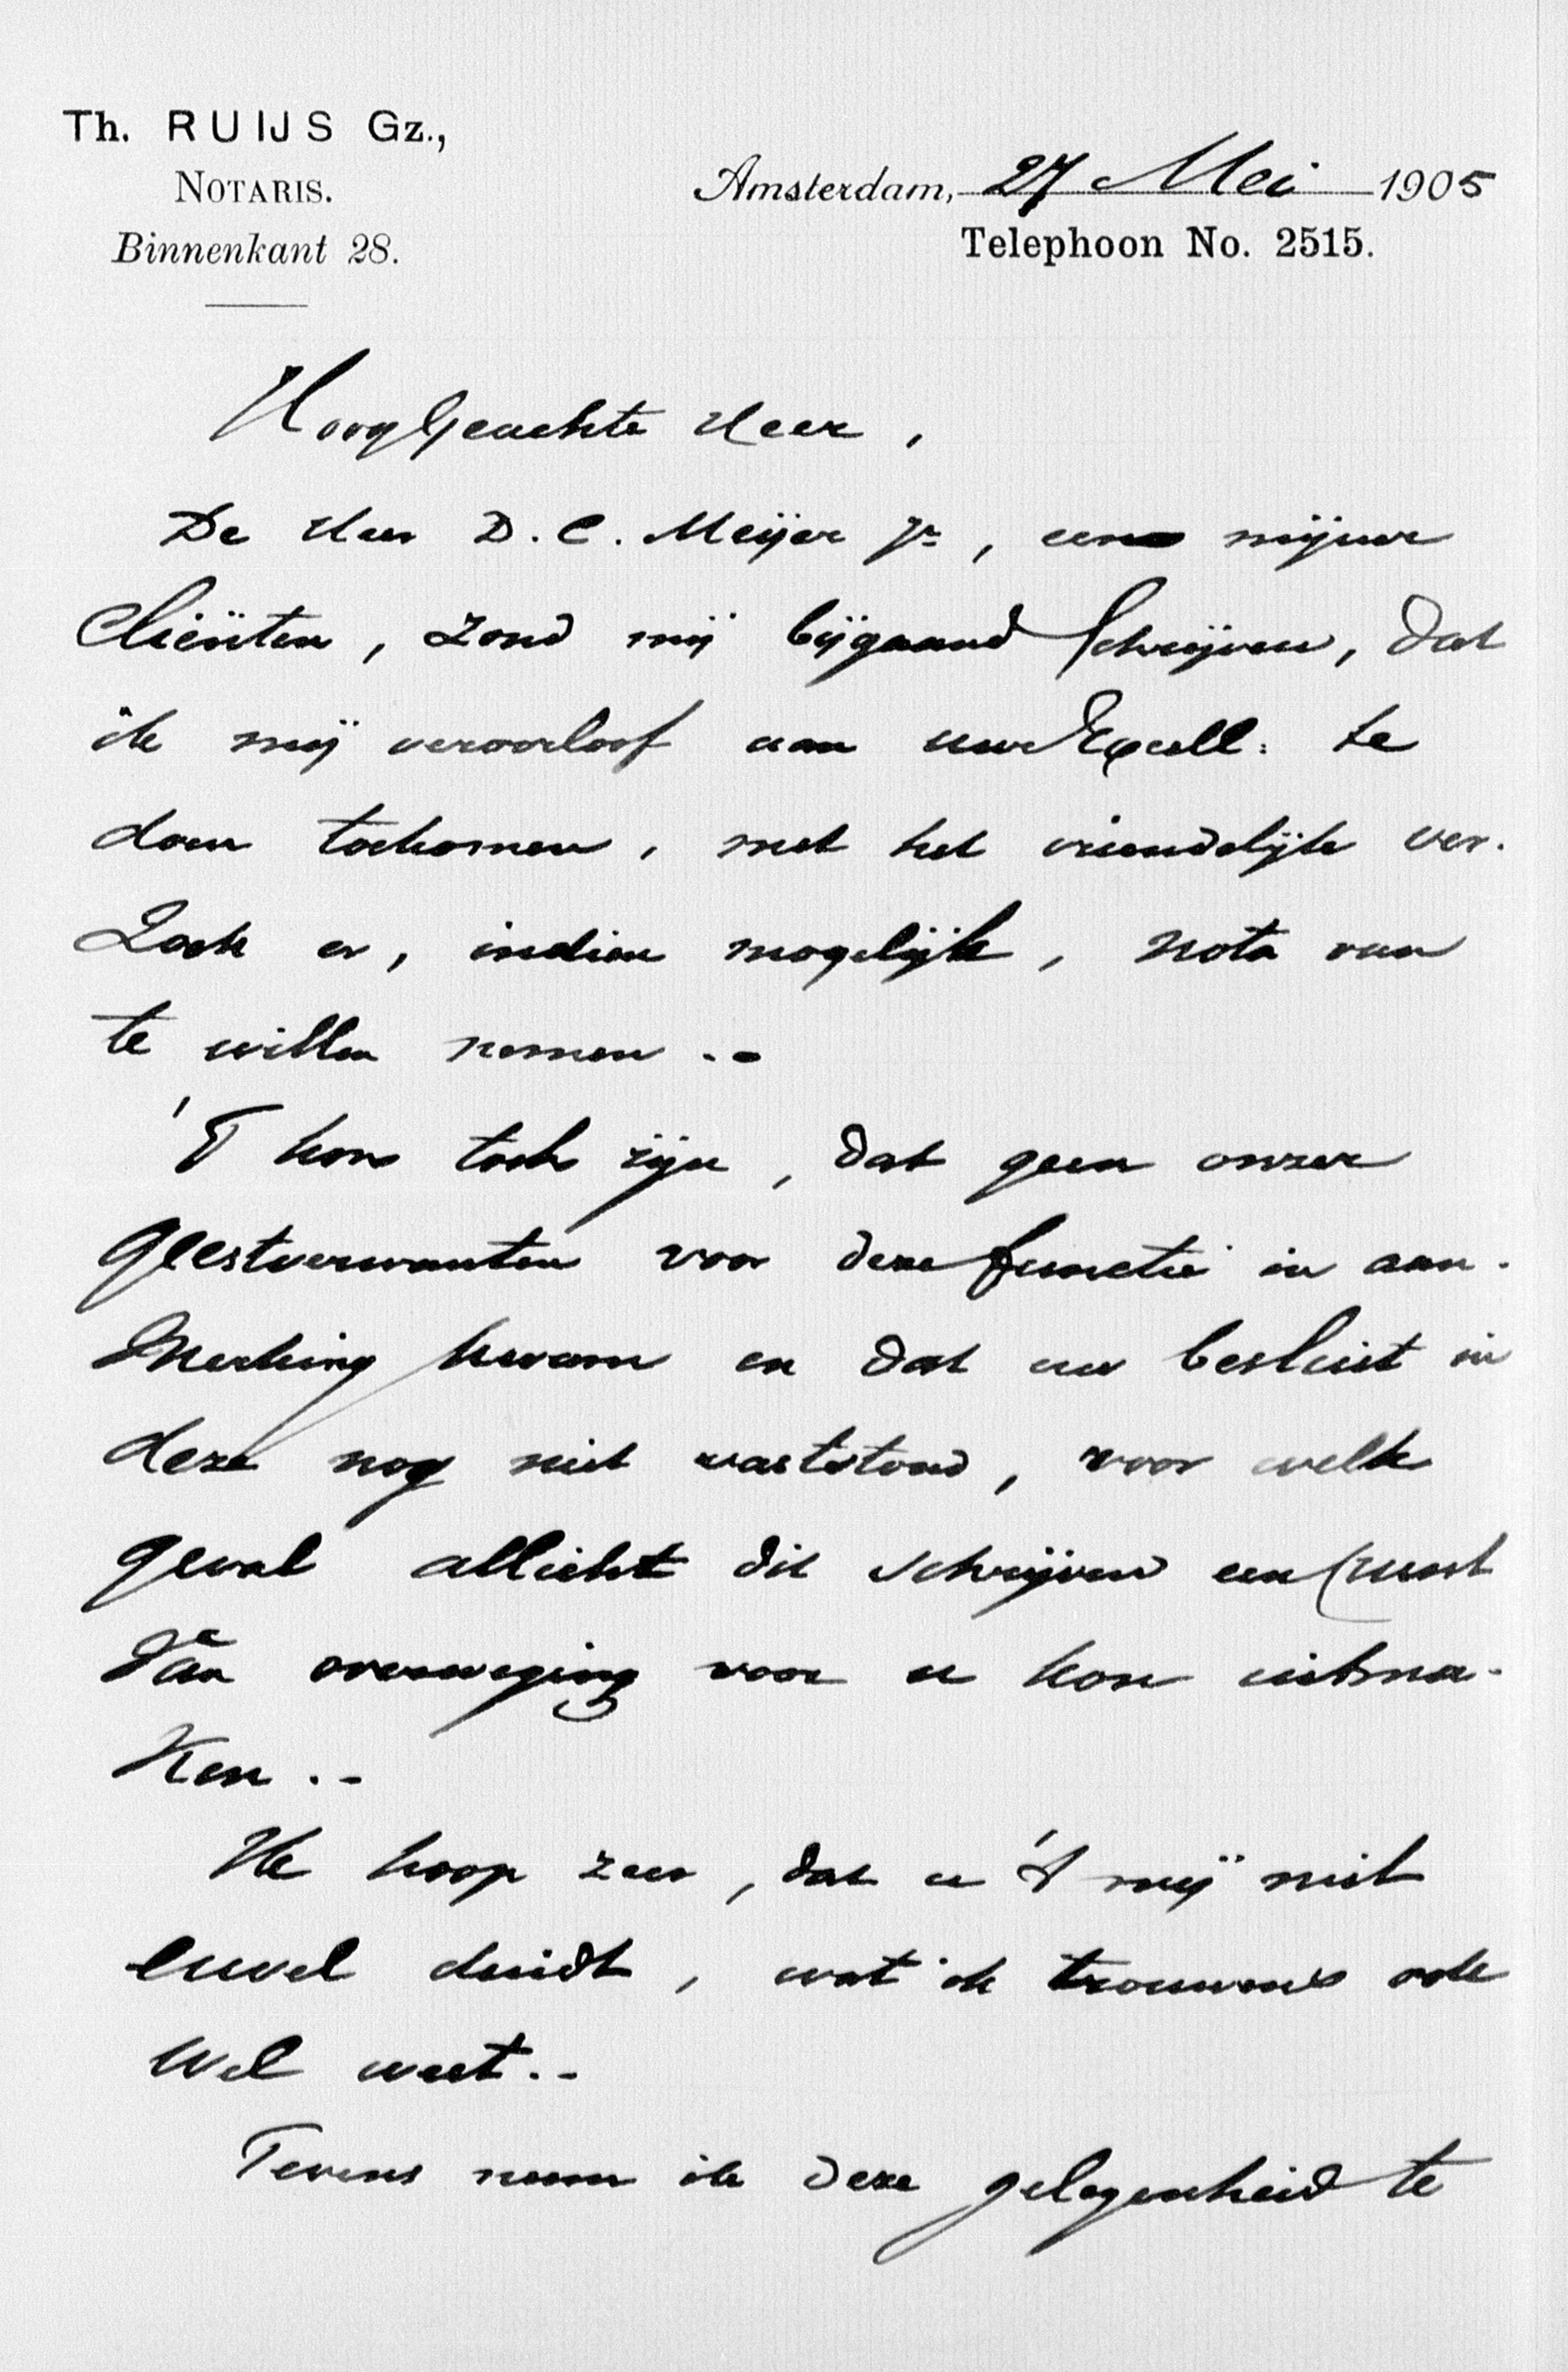 Th. RUIJS Gz.,
NOTARIS.
Binnenkant 28.
Amsterdam, 27 Mei 1905
Telephoon No. 2515.
Hooggeachte Heer,
De Heer D. C. Meijer Jr, een mijner
Cliënten, zond mij bijgaand schrijven, dat
ik mij veroorloof aan uwe Excell: te
doen toekomen, met het vriendelijk ver-
zoek er, indien mogelijk, nota van
te willen nemen.-
'T kon toch zijn, dat geen onzer
geestverwanten voor deze functie in aan-
merking kwam en dat uw besluit in
deze nog niet vaststond, voor welk
geval allicht dit schrijven een punt
van overweging voor u kon uitma-
ken.-
Ik hoop zeer, dat u 't mij niet
euvel duidt, wat ik trouwens ook
wel weet.-
Tevens neem ik deze gelegenheid te